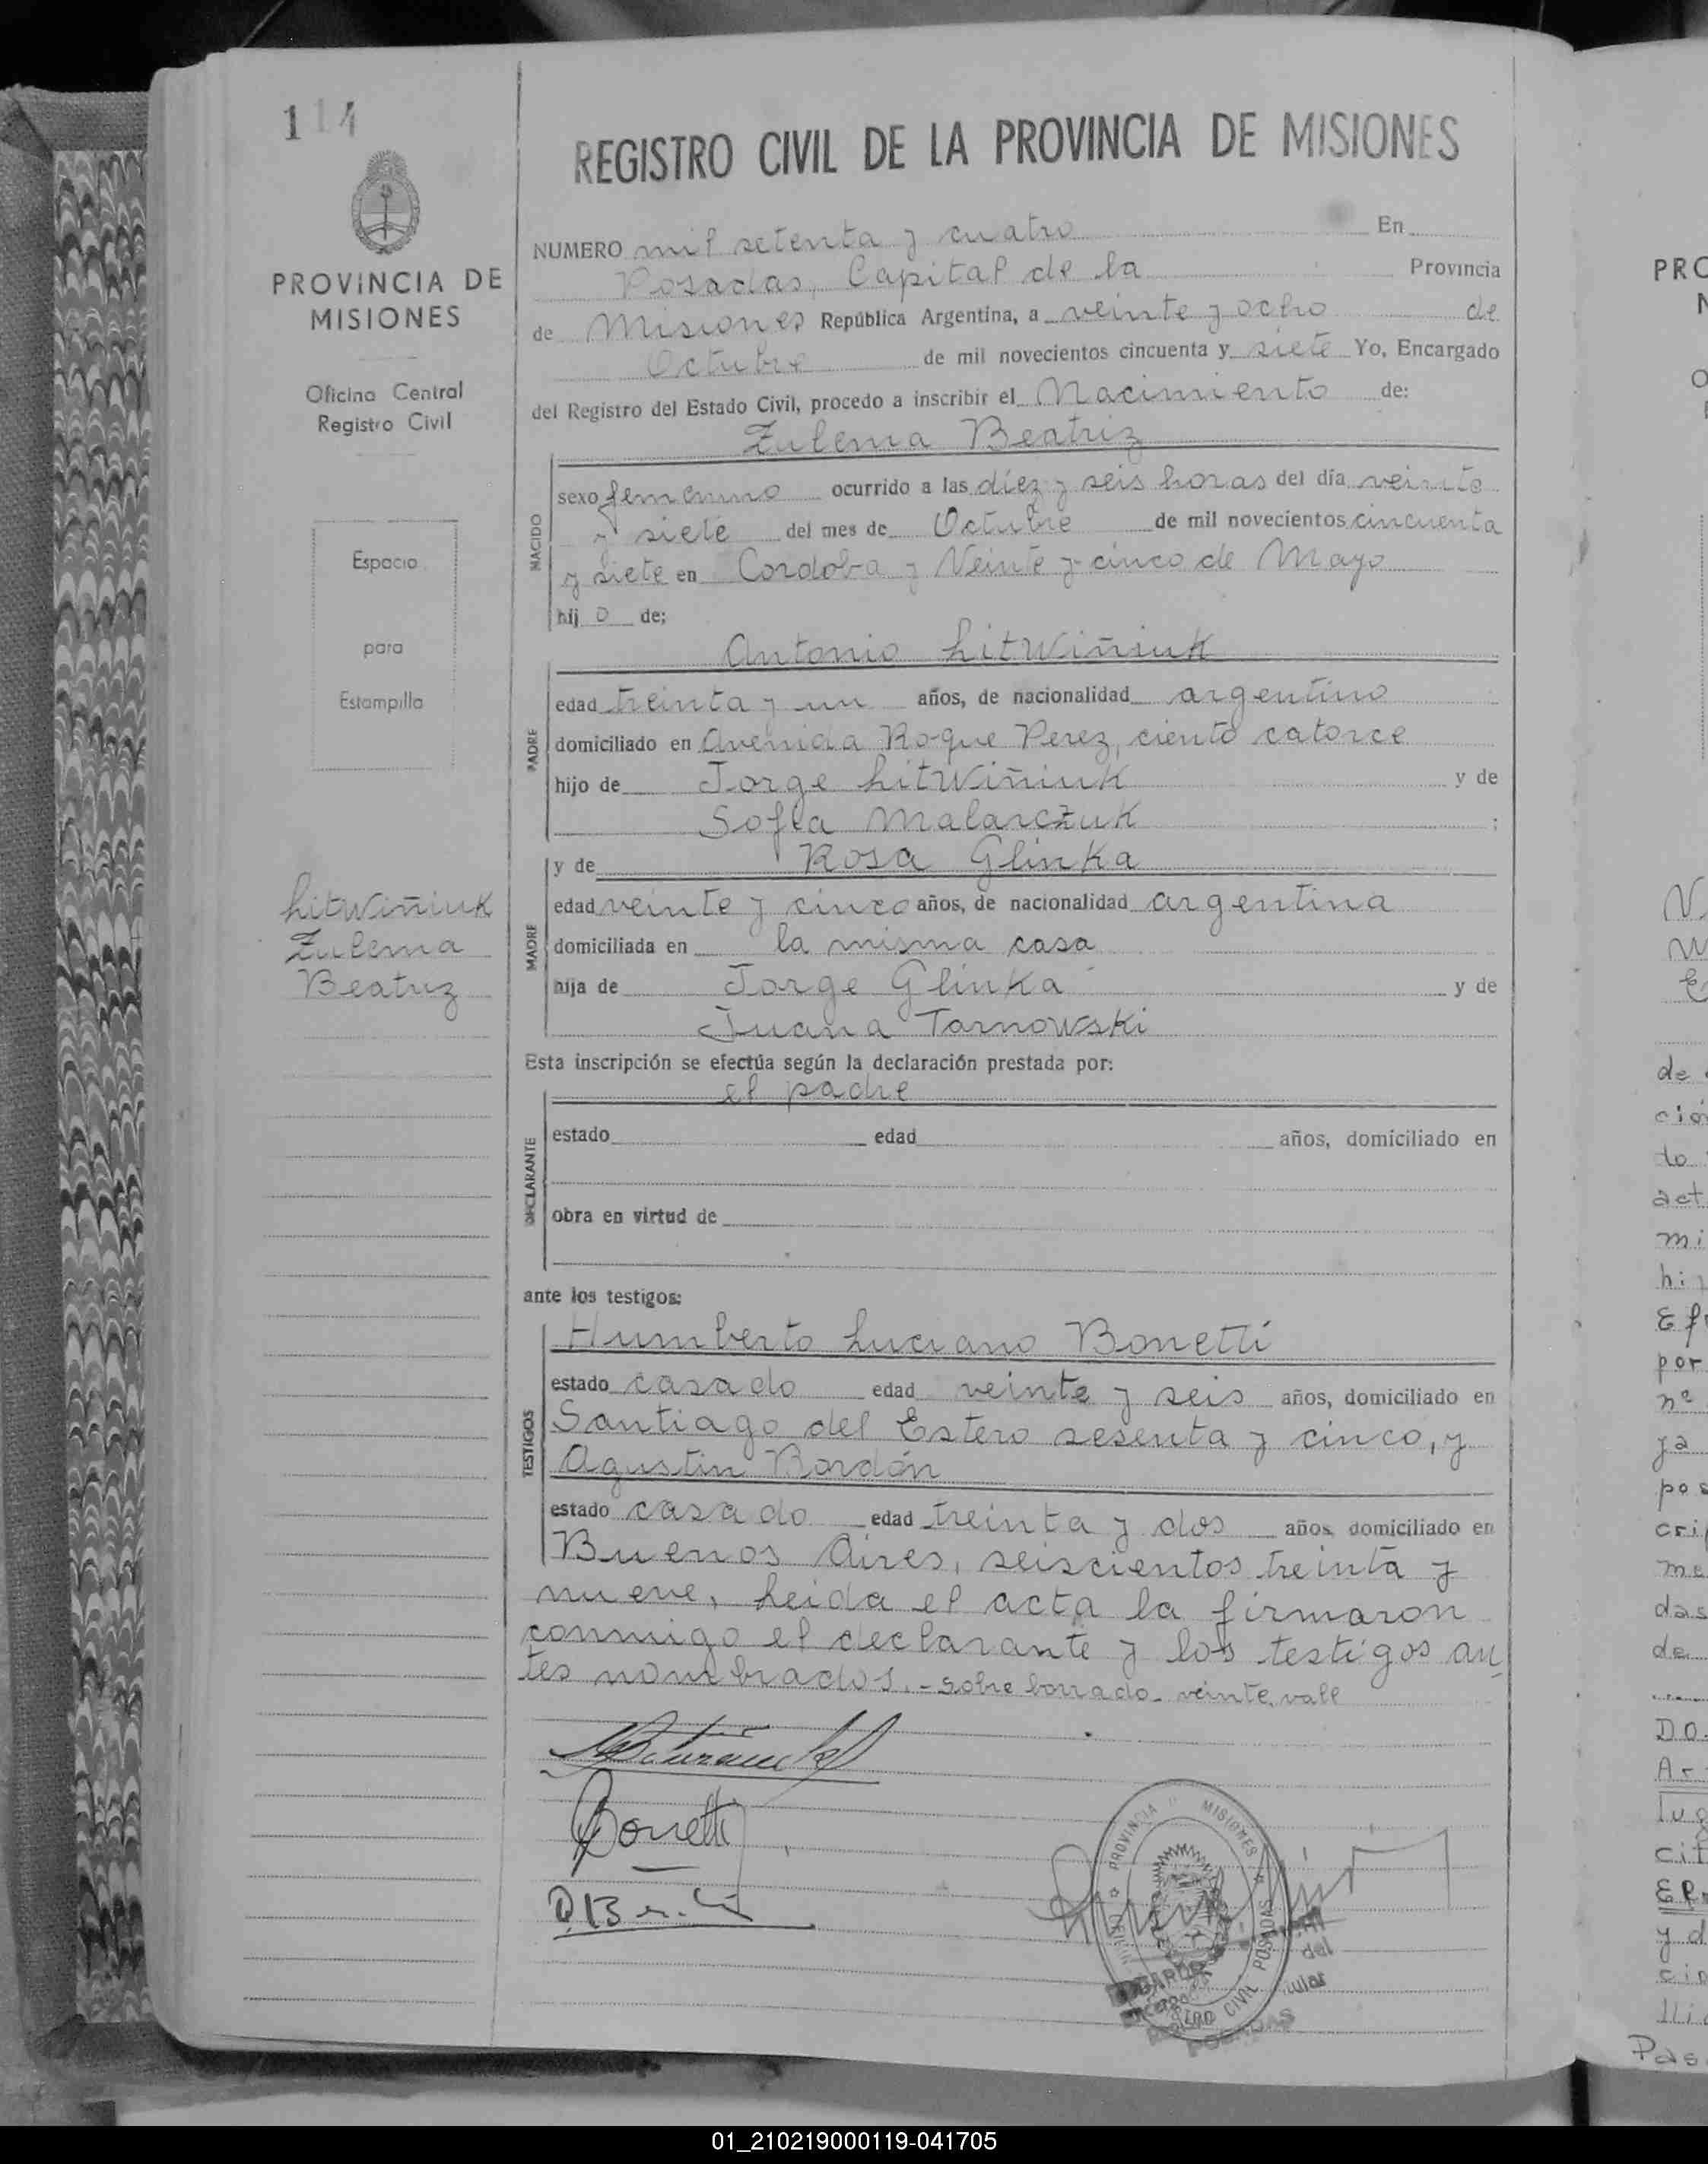 114
PROVINCIA DE
MISIONES
Oficina Central
Registro Civil
Espacio
para
Estampilla
Litwiñiuk
Zulema
Beatriz
REGISTRO CIVIL DE LA PROVINCIA DE MISIONES
NUMERO mil setenta y cuatro En
Posadas, Capital de la Provincia
de Misiones República Argentina, a veinte y ocho de
Octubre de mil novecientos cincuenta y siete Yo, Encargado
del Registro del Estado Civil, procedo a inscribir el Nacimiento de:
Zulema Beatriz
NACIDO
sexo femenino ocurrido a las diez y seis horas del día veinte
y siete del mes de Octubre de mil novecientos cincuenta
y siete en Cordoba y Veinte y cinco de Mayo
hij o de;
Antonio Litwiñiuk
PADRE
edad treinta y un años, de nacionalidad argentino
domiciliado en Avenida Roque Perez, ciento catorce
hijo de Jorge Litwiñiuk y de
Sofia Malarczuk ;
y de Rosa Glinka
MADRE
edad veinte y cinco años, de nacionalidad argentina
domiciliada en la misma casa
hija de Jorge Glinka y de
Juana Tarnowski
Esta inscripción se efectúa según la declaración prestada por:
el padre
DECLARANTE
estado edad años, domiciliado en
obra en virtud de
ante los testigos:
Humberto Luciano Bonetti
TESTIGOS
estado casado edad veinte y seis años, domiciliado en
Santiago del Estero sesenta y cinco, y
Agustin Bordón
estado casado edad treinta y dos años, domiciliado en
Buenos Aires, seiscientos treinta y
nueve, Leida el acta la firmaron
conmigo el declarante y los testigos an
tes nombrados.- sobre borrado- veinte, vale
Bonetti
PROVINCIA MISIONES
CIVIL POSADAS
POSADAS
PRO
de
ció
do
act
mi
por
nº
ya
pos
crip
me
das
de
DO
Ar
lug
cit
y d
Pas
01_210219000119-041705